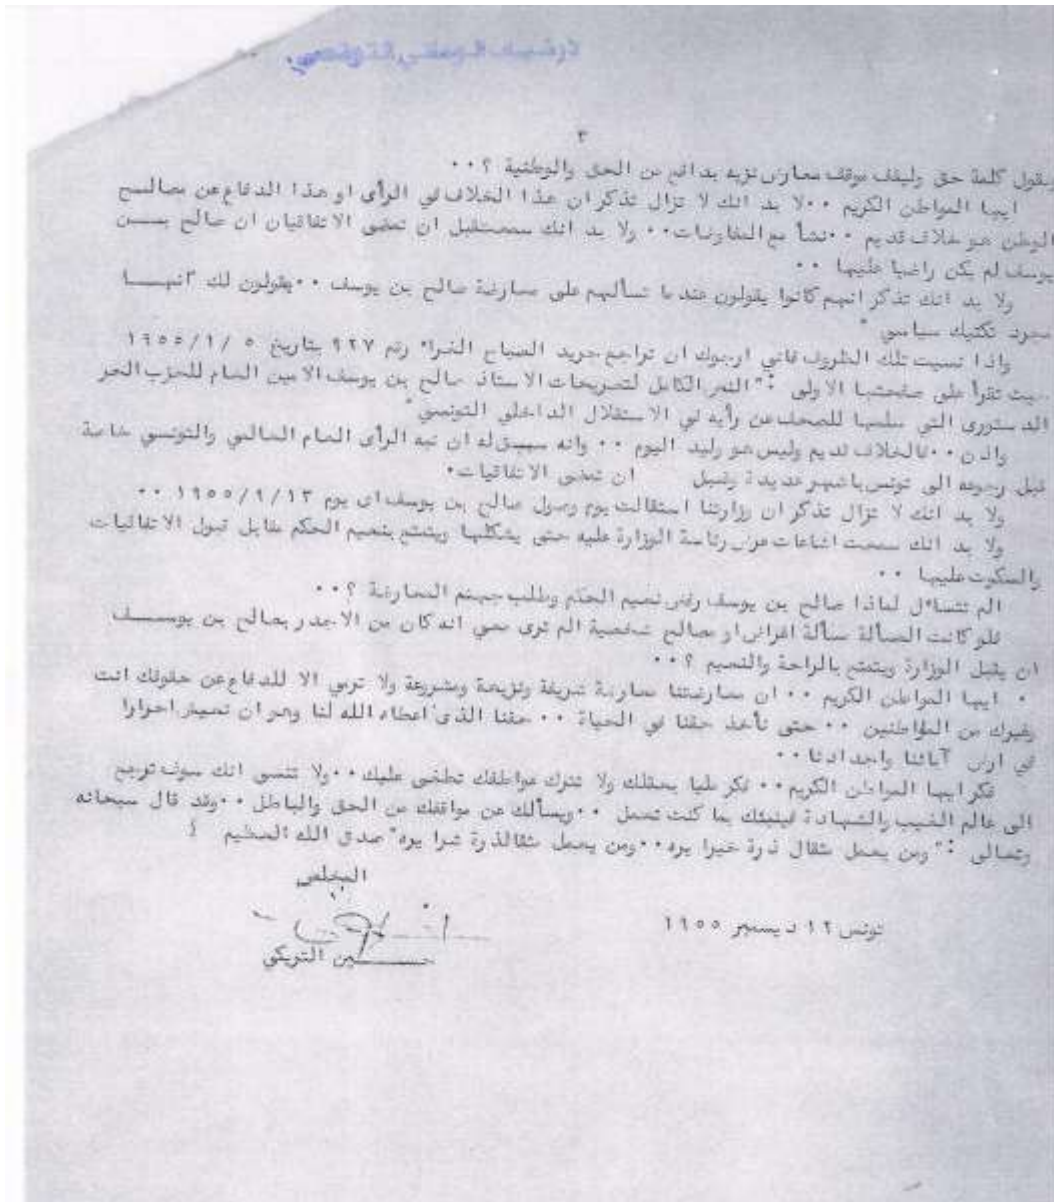 الارشيف الوطني التونسي
٣
يقول كلمة حق وليقف موقف معارض نزيه بدافع من الحق والوطنية ؟٠٠
ايها المواطن الكريم ٠٠لا بد انك لا تزال تذكر ان هذا الخلاف في الرأى او هذا الدفاع عن مصالح
الوطن هو خلاف قديم ٠٠نشأ مع المفاوضات٠٠ ولا بد انك سمعت قبل ان تمضى الاتفاقيات ان صالح بن
يوسف لم يكن راضيا عليها ٠٠
ولا بد انك تذكر انهم كانوا يقولون عندما تسألهم على معارضة صالح بن يوسف ٠٠يقولون لك "انها
مجرد تكتيك سياسي "
واذا نسيت تلك الظروف فاني ارجوك ان تراجع جريد الصباح الغرا" رقم ٩٢٧ بتاريخ ٥ /١/ ١٩٥٥
حيث تقرأ على صفحتها الاولى :" النص الكامل لتصريحات الاستاذ صالح بن يوسف الامين العام للحزب الحر
الدستورى التي سلمها للصحف عن رأيه في الاستقلال الداخلي التونسي"
واذن ٠٠فالخلاف قديم وليس هو وليد اليوم ٠٠ وانه سبق له ان نبه الرأى العام العالمي والتونسي خاصة
قبل رجوعه الى تونس باشهر عديدة وقبل ان تمضى الاتفاقيات٠
ولا بد انك لا تزال تذكر ان وزارتنا استقالت يوم وصول صالح بن يوسف اى يوم ١٩٥٥/٩/١٣ ٠٠
ولا بد انك سمعت اشاعات عرض رئاسة الوزارة عليه حتى يشكلها ويتمتع بنعيم الحكم مقابل قبول الاتفاقيات
والسكوت عليها ٠٠
الم تتساءل لماذا صالح بن يوسف رفض نعيم الحكم وطلب جهنم المعارضة ؟٠٠
فلو كانت المسألة مسألة اغراض او مصالح شخصية الم ترى معي انه كان من الاجدر بصالح بن يوسف
ان يقبل الوزارة ويتمتع بالراحة والنعيم ؟٠٠
٠ ايها المواطن الكريم ٠٠ ان معارضتنا معارضة شريفة ونزيهة ومشروعة ولا ترمي الا للدفاع عن حقوقك انت
وغيرك من المواطنين ٠٠ حتى نأخذ حقنا في الحياة ٠٠ حقنا الذى اعطاه الله لنا وهو ان نعيش احرارا
في ارض آبائنا واجدادنا ٠٠
فكر ايها المواطن الكريم٠٠ فكر مليا بعقلك ولا تترك عواطفك تطغى عليك ٠٠ولا تنسى انك سوف ترجع
الى عالم الغيب والشهادة فينبئك بما كنت تعمل ٠٠ويسألك عن مواقفك من الحق والباطل ٠٠وقد قال سبحانه
وتعالى :" ومن يعمل مثقال ذرة خيرا يره٠٠ومن يعمل مثقالذرة شرا يره" صدق الله العظيم
المخلص
تونس ١٢ ديسمبر ١٩٥٥
حسين التريكي